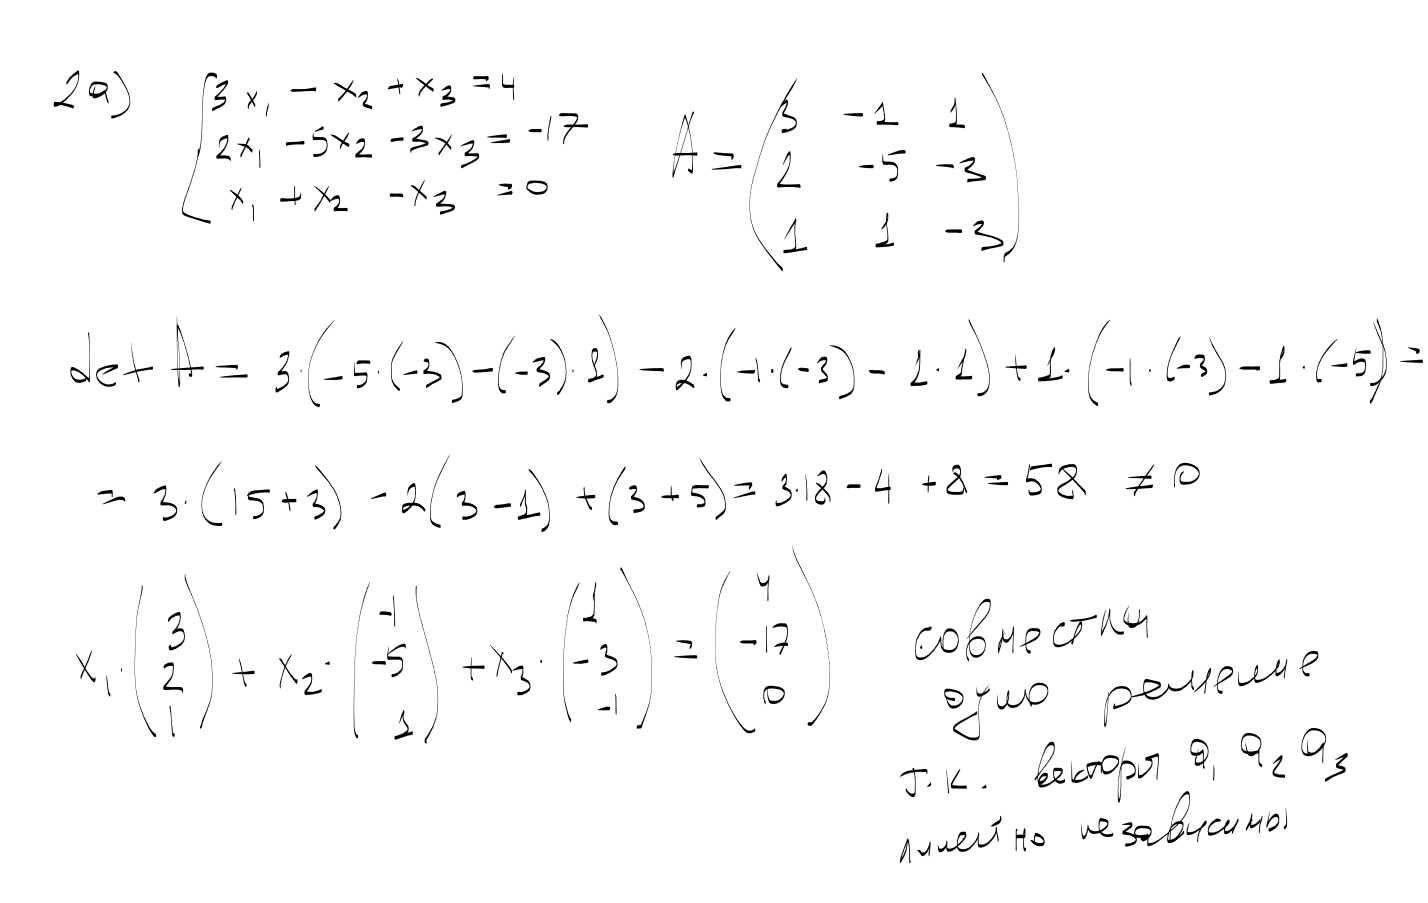 2a) 3x₁ - x₂ + x₃ = 4
2x₁ - 5x₂ - 3x₃ = -17
x₁ + x₂ - x₃ = 0
A = ( 3 -1 1
2 -5 -3
1 1 -3 )
det A = 3·(-5·(-3)-(-3)·1) - 2·(-1·(-3) - 1·1) + 1·(-1·(-3) - 1·(-5)) =
= 3·(15+3) - 2(3-1) + (3+5) = 3·18 - 4 + 8 = 58 ≠ 0
x₁·(3 2 1) + x₂·(-1 -5 1) + x₃·(1 -3 -1) = (4 -17 0)
совместна
одно решение
т.к. векторы a₁ a₂ a₃
линейно независимы